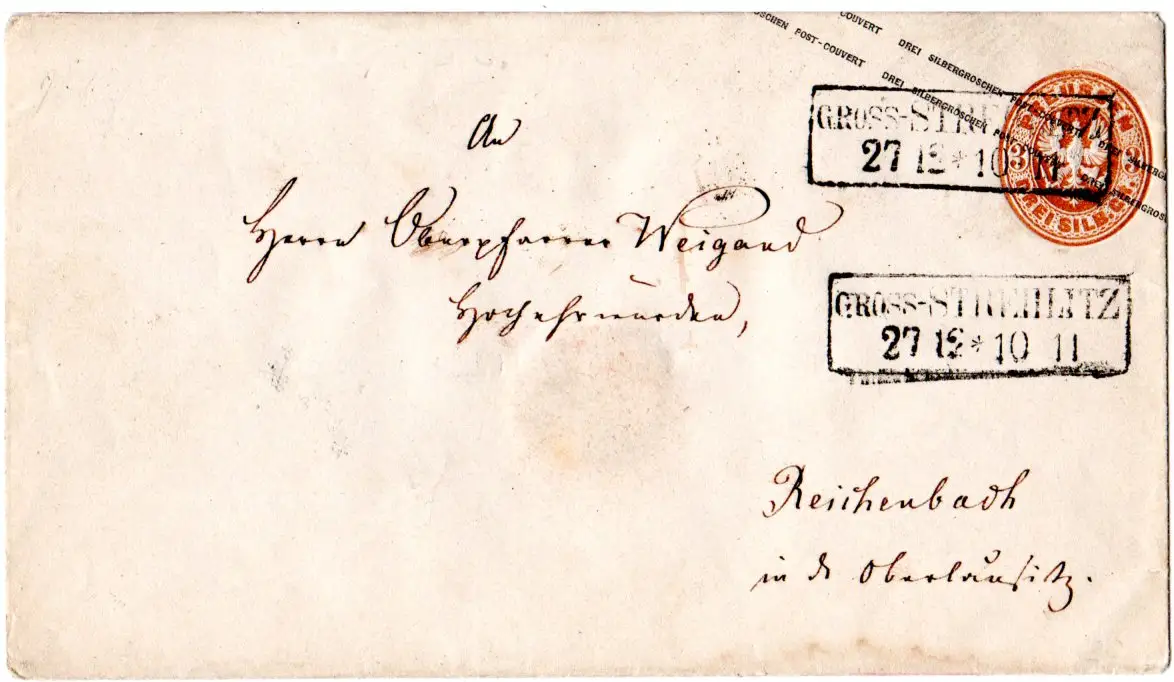 SCHEN POST-COUVERT DREI SILBERGROSCHEN POST-COUVERT DREI SILBERGROSCHEN
COUVERT DREI SILBERGROSCHEN POST-COUVERT DREI SILBERG
PREUSSEN
3 3
DREI SILB.GR.
GROSS-STREHLITZ
27 12 * 10 11
GROSS-STREHLITZ
27 12 * 10 11
An
Herrn Oberpfarrer Weigand
Hochehrwürden,
Reichenbach
in d Oberlausitz.